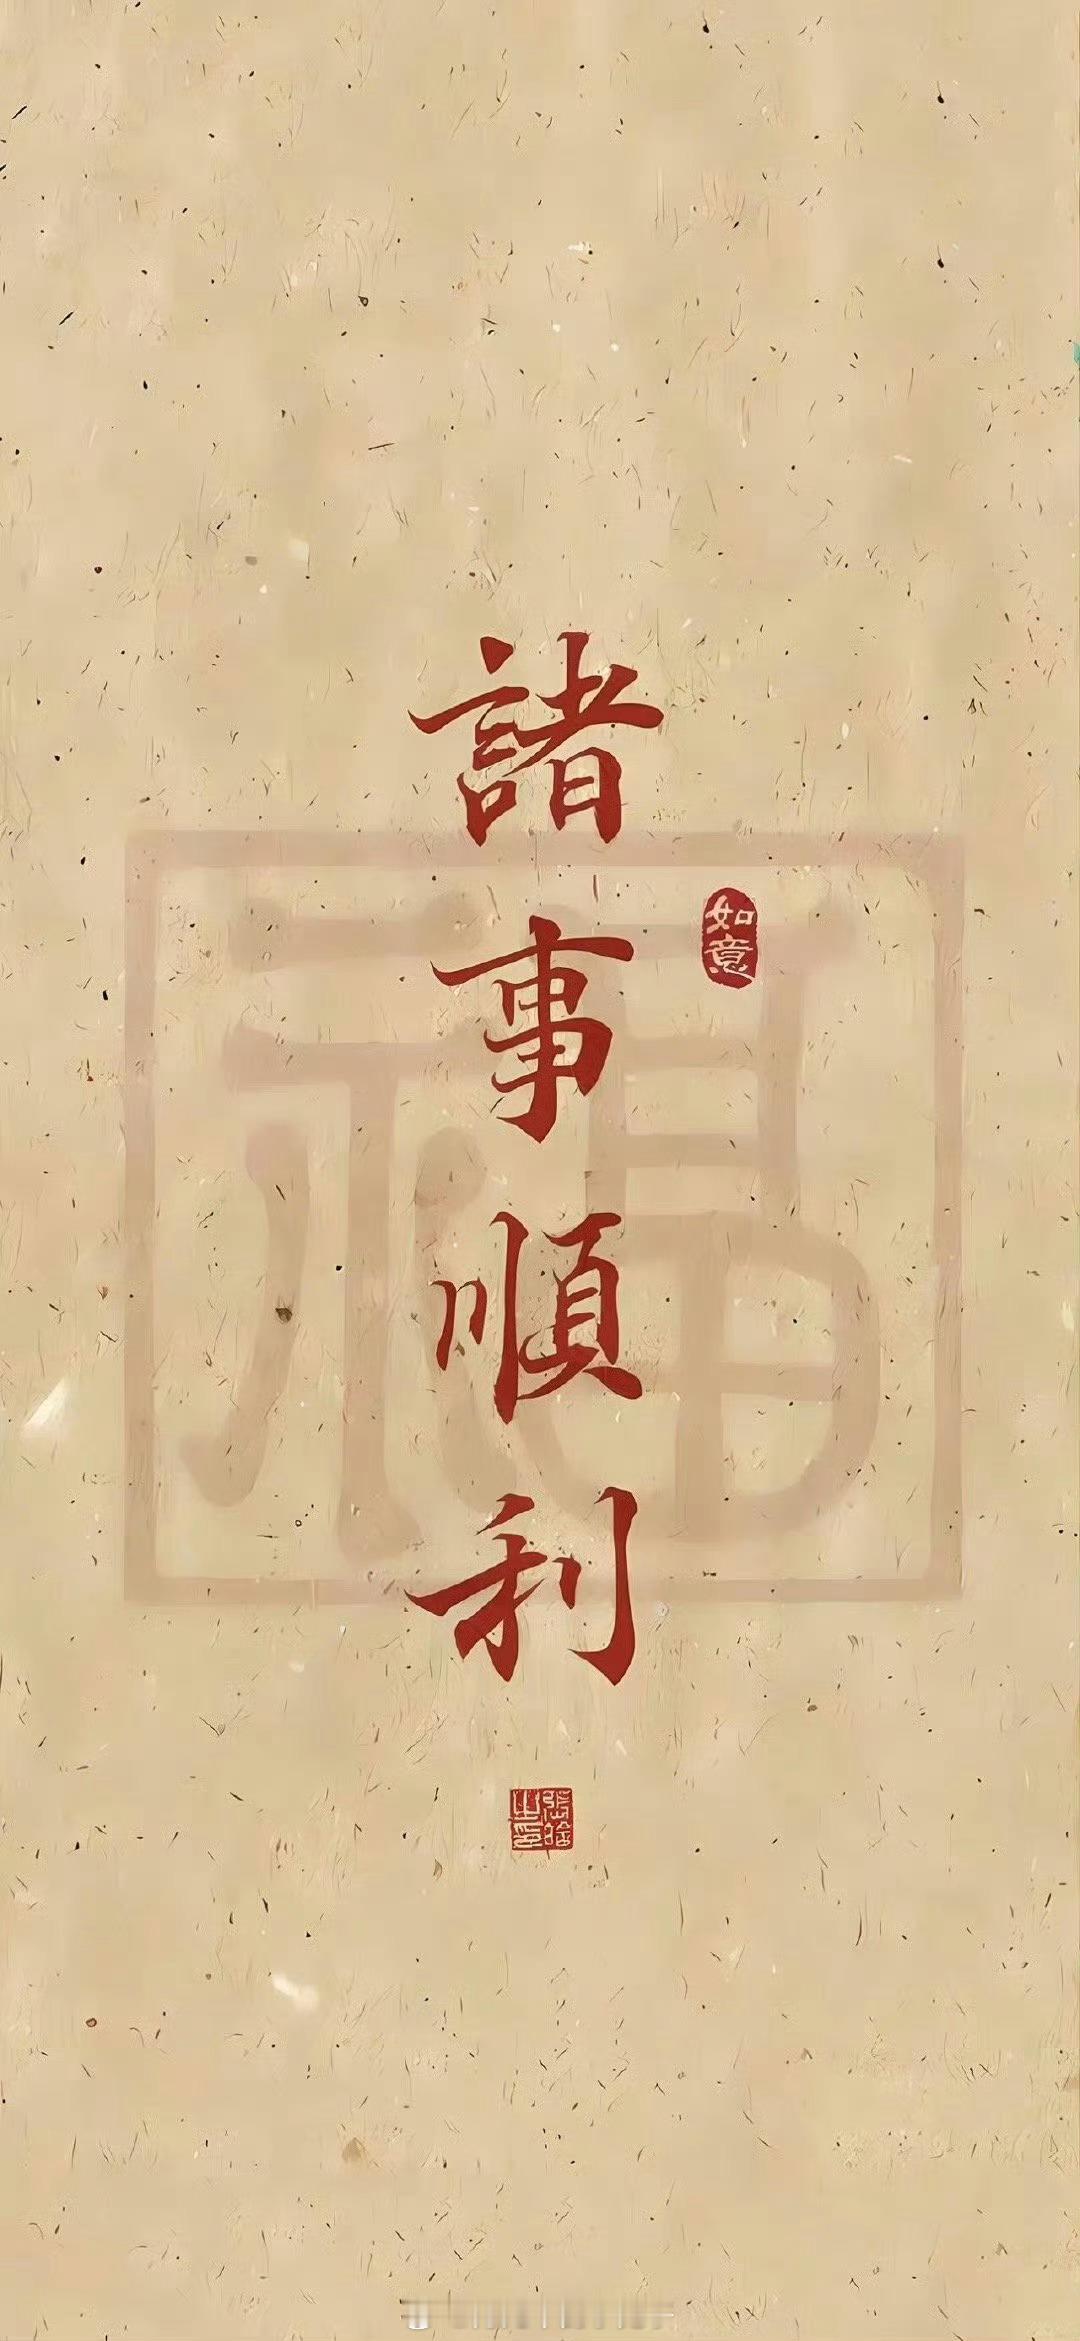 諸事順利
如意
福